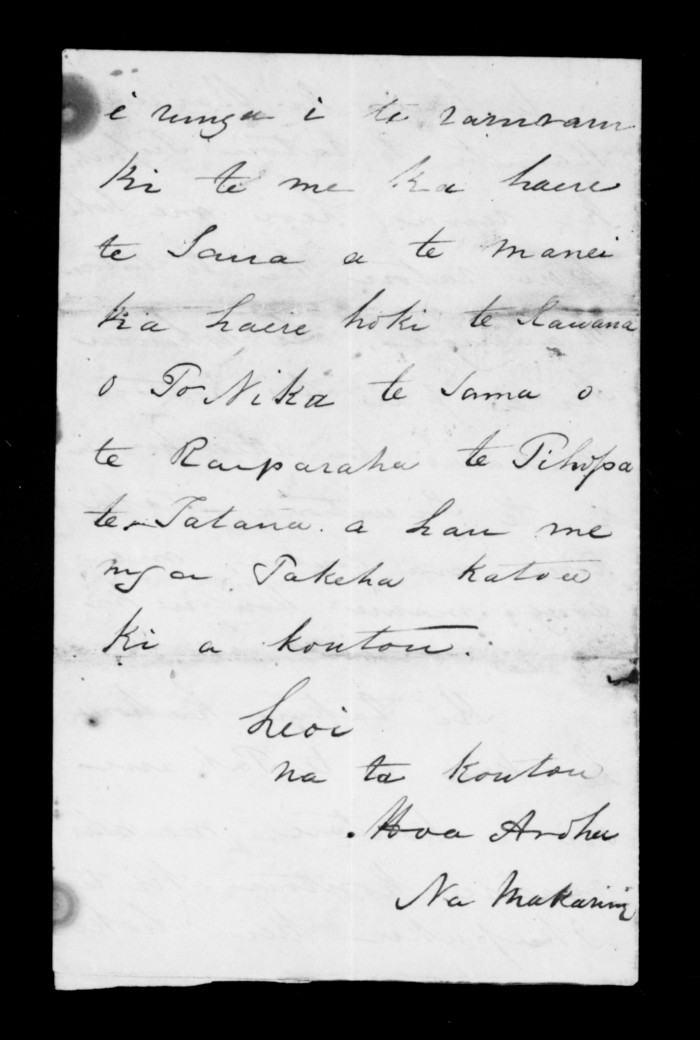 i runga i te raruraru
Ki te me ka haere
te Taua a te manei
kia haere hoki te Kawana
o Po Nika te Tama o
te Rauparaha te Pihopa
te Tatana. a hau me
nga Pakeha katou
ki a koutou.
heoi
na ta koutou
Hoa Aroha
Na Makarini